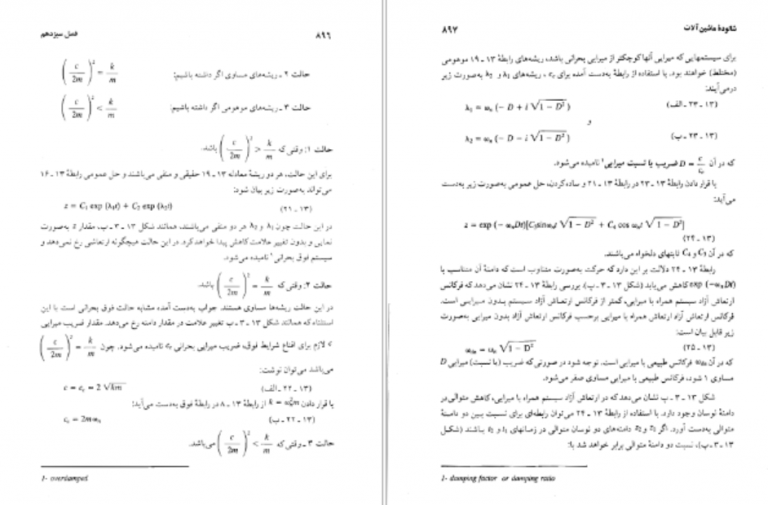 ۸۹۶ فصل سیزدهم
حالت ۲ ـ ریشه‌های مساوی اگر داشته باشیم: (c/2m)² = k/m
حالت ۳ ـ ریشه‌های موهومی اگر داشته باشیم: (c/2m)² < k/m
حالت ۱: وقتی که (c/2m)² > k/m باشد.
برای این حالت، هر دو ریشهٔ معادله ۱۳ ـ ۱۹ حقیقی و منفی می‌باشند و حل عمومی رابطهٔ ۱۳ ـ ۱۶
می‌تواند به‌صورت زیر بیان شود:
z = C₁ exp (λ₁t) + C₂ exp (λ₂t) (۱۳ ـ ۲۱)
در این حالت چون λ₁ و λ₂ هر دو منفی می‌باشند، همانند شکل ۱۳ ـ ۳ ـ ب، مقدار z به‌صورت
نمایی و بدون تغییر علامت کاهش پیدا خواهد کرد. در این حالت هیچگونه ارتعاشی رخ نمی‌دهد و
سیستم فوق بحرانی¹ نامیده می‌شود.
حالت ۲: وقتی که (c/2m)² = k/m باشد.
در این حالت ریشه‌ها مساوی هستند. جواب به‌دست آمده مشابه حالت فوق بحرانی است با این
استثناء که همانند شکل ۱۳ ـ ۳ ـ ب تغییر علامت در مقدار دامنه رخ می‌دهد. مقدار ضریب میرایی
c لازم برای اقناع شرایط فوق، ضریب میرایی بحرانی c_c نامیده می‌شود. چون (c/2m)² = k/m
می‌باشد می‌توان نوشت:
c = c_c = 2 √km (۱۳ ـ ۲۲ ـ الف)
با قرار دادن k = ω_n²m از رابطهٔ ۱۳ ـ ۸ در رابطهٔ فوق به‌دست می‌آید:
c_c = 2mω_n (۱۳ ـ ۲۲ ـ ب)
حالت ۳ ـ وقتی که (c/2m)² < k/m می‌باشد.
1- overdamped
شالودهٔ ماشین آلات ۸۹۷
برای سیستمهایی که میرایی آنها کوچکتر از میرایی بحرانی باشد، ریشه‌های رابطهٔ ۱۳ ـ ۱۹ موهومی
(مختلط) خواهند بود. با استفاده از رابطهٔ به‌دست آمده برای c_c، ریشه‌های λ₁ و λ₂ به‌صورت زیر
درمی‌آیند:
λ₁ = ω_n (− D + i √1 − D²) (۱۳ ـ ۲۳ ـ الف)
و
λ₂ = ω_n (− D − i √1 − D²) (۱۳ ـ ۲۳ ـ ب)
که در آن D = c/c_c ضریب یا نسبت میرایی¹ نامیده می‌شود.
با قرار دادن رابطهٔ ۱۳ ـ ۲۳ در رابطهٔ ۱۳ ـ ۲۱ و ساده‌کردن، حل عمومی به‌صورت زیر به‌دست
می‌آید:
z = exp (− ω_nDt)[C₃sinω_nt √1 − D² + C₄ cos ω_nt √1 − D²]
(۱۳ ـ ۲۴)
که در آن C₃ و C₄ ثابتهای دلخواه می‌باشند.
رابطهٔ ۱۳ ـ ۲۴ دلالت بر این دارد که حرکت به‌صورت متناوب است که دامنهٔ آن متناسب با
exp (−ω_nDt) کاهش می‌یابد (شکل ۱۳ ـ ۳ ـ پ). بررسی رابطهٔ ۱۳ ـ ۲۴ نشان می‌دهد که فرکانس
ارتعاش آزاد سیستم همراه با میرایی، کمتر از فرکانس ارتعاش آزاد سیستم بدون میرایی است.
فرکانس ارتعاش آزاد ارتعاش همراه با میرایی برحسب فرکانس ارتعاش آزاد بدون میرایی به‌صورت
زیر قابل بیان است:
ω_dn = ω_n √1 − D² (۱۳ ـ ۲۵)
که در آن ω_dn فرکانس طبیعی با میرایی است. توجه شود در صورتی که ضریب (یا نسبت) میرایی D
مساوی ۱ شود، فرکانس طبیعی با میرایی مساوی صفر می‌شود.
شکل ۱۳ ـ ۳ ـ ب نشان می‌دهد که در ارتعاش آزاد سیستم همراه با میرایی، کاهش متوالی در
دامنهٔ نوسان وجود دارد. با استفاده از رابطهٔ ۱۳ ـ ۲۴ می‌توان رابطه‌ای برای نسبت بین دو دامنهٔ
متوالی به‌دست آورد. اگر z₁ و z₂ دامنه‌های دو نوسان متوالی در زمانهای t₁ و t₂ باشند (شکل
۱۳ ـ ۳ ـ پ)، نسبت دو دامنهٔ متوالی برابر خواهد شد با:
1- damping factor or damping ratio